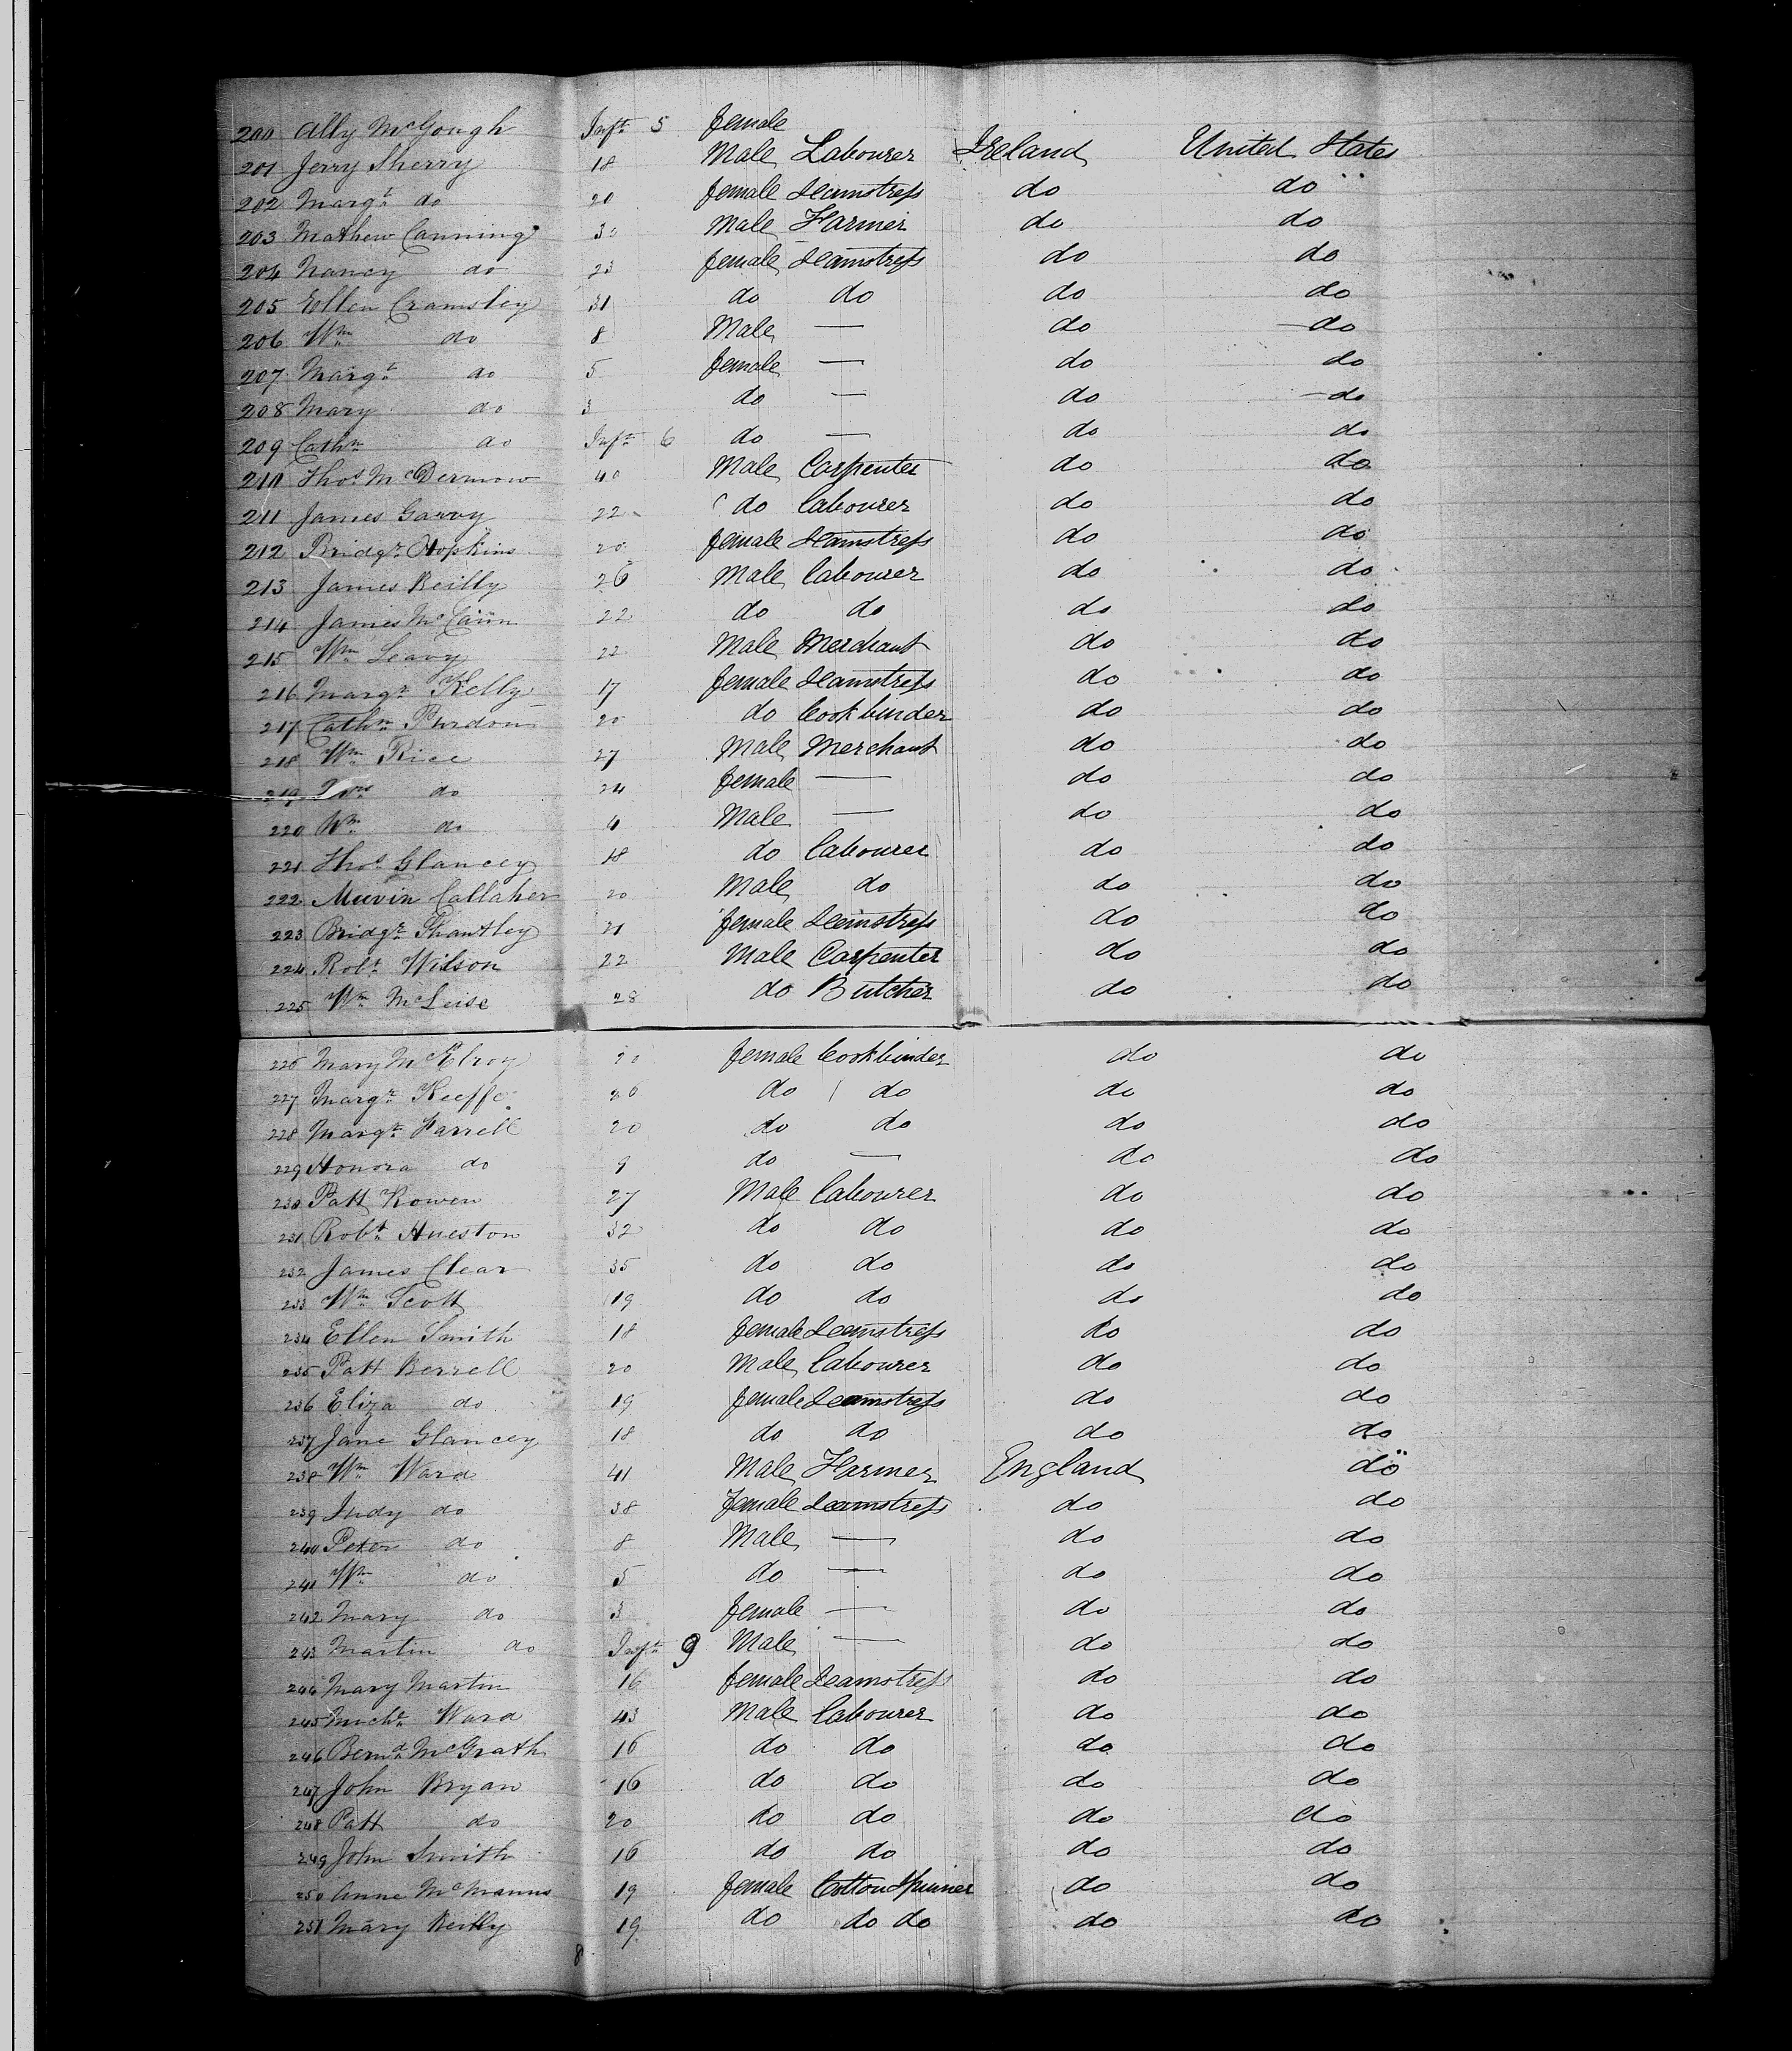 200 Ally McGough Inft 5 female
201 Jerry Sherry 18 Male Labourer Ireland United States
202 Margt do 20 female Seamstress do do
203 Mathew Canning 30 Male Farmer do do
204 Nancy do 23 female Seamstress do do
205 Ellen Cramsley 31 do do do do
206 Wm do 8 Male — do do
207 Margt do 5 female — do do
208 Mary do 3 do — do do
209 Cathn do Inft 6 do — do do
210 Thos McDermow 40 Male Carpenter do do
211 James Garvy 22 do labourer do do
212 Bridgt Hopkins 20 female Seamstress do do
213 James Reilly 26 Male labourer do do
214 James McCann 22 do do do do
215 Wm Leavy 22 Male Merchant do do
216 Margt Kelly 17 female Seamstress do do
217 Cathn Purdon 20 do bookbinder do do
218 Wm Rice 27 Male Merchant do do
219 do 24 female — do do
220 Wm do Male — do do
221 Thos Glancey 18 do labourer do do
222 Callaher 20 Male do do do
223 Bridgt 21 female Seamstress do do
224 Robt Wilson 22 Male Carpenter do do
225 Wm McLeise 28 do Butcher do do
226 Mary McElroy 20 female bookbinder do do
227 Margt Keeffe 26 do do do do
228 Margt Farrell 20 do do do do
229 Honora do 9 do — do do
230 Patt Rowen 27 Male labourer do do
231 Robt Hueston 32 do do do do
232 James Clear 35 do do do do
233 Wm Scott 19 do do do do
234 Ellen Smith 18 female Seamstress do do
235 Patt Berrell 20 Male labourer do do
236 Eliza do 19 female Seamstress do do
237 Jane Glancey 18 do do do do
238 Wm Ward 41 Male Farmer England do
239 Judy do 38 female Seamstress do do
240 Peter do 8 Male — do do
241 Wm do 5 do — do do
242 Mary do 3 female — do do
243 Martin do Inft 9 Male — do do
244 Mary Martin 16 female Seamstress do do
245 Michl Ward 43 Male labourer do do
246 Bernd McGrath 16 do do do do
247 John Bryan 16 do do do do
248 Patt do 20 do do do do
249 John Smith 16 do do do do
250 Anne McManus 19 female Cotton Spinner do do
251 Mary Reilly 19 do do do do do
8